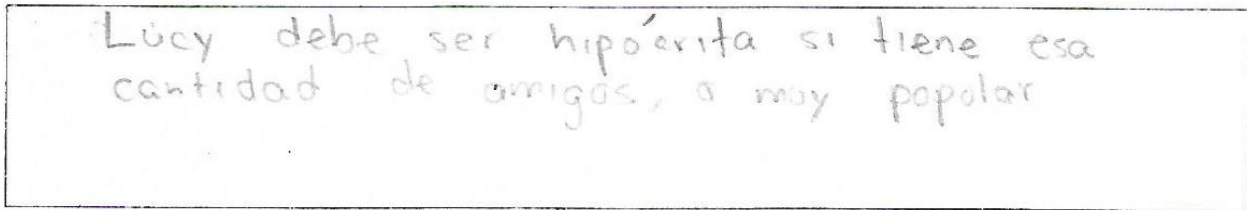 Lucy debe ser hipócrita si tiene esa
cantidad de amigos, o muy popular